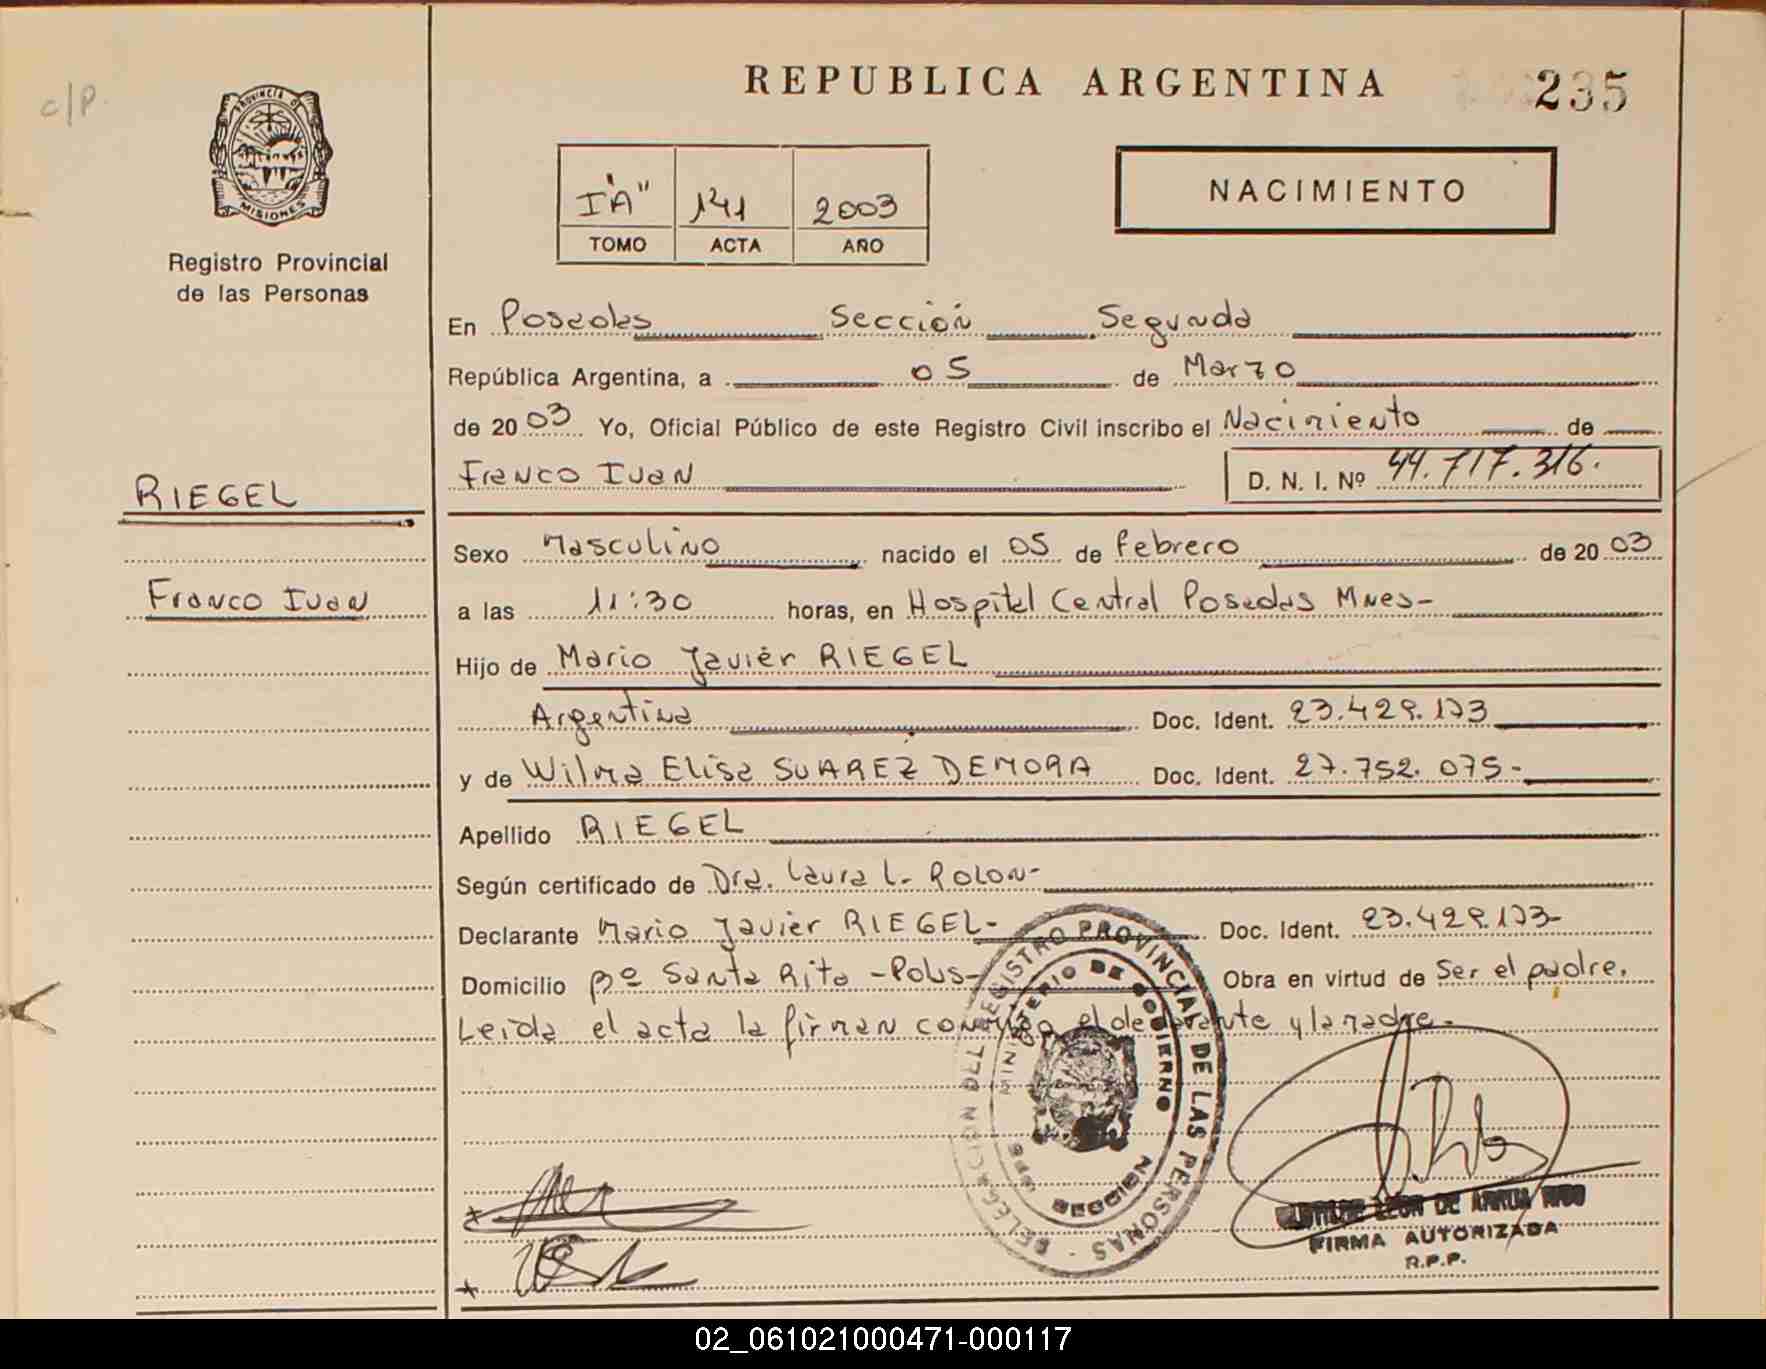 c/P.
REPUBLICA ARGENTINA
235
PROVINCIA DE
MISIONES
Registro Provincial
de las Personas
I "A" 141 2003
TOMO ACTA AÑO
NACIMIENTO
En Posadas Sección Segunda
República Argentina, a 05 de Marzo
de 2003 Yo, Oficial Público de este Registro Civil inscribo el Nacimiento de
Franco Ivan D. N. I. Nº 44.717.316.
RIEGEL
Franco Ivan
Sexo Masculino nacido el 05 de febrero de 2003
a las 11:30 horas, en Hospital Central Posadas Mnes-
Hijo de Mario Javier RIEGEL
Argentina Doc. Ident. 23.429.173
y de Wilma Elisa SUAREZ DEMORA Doc. Ident. 27.752.075-
Apellido RIEGEL
Según certificado de Dra. Laura L. ROLON-
Declarante Mario Javier RIEGEL- Doc. Ident. 23.429.173-
Domicilio Bº Santa Rita -Pdas- Obra en virtud de Ser el padre.
Leida el acta la firman conmigo el declarante y la madre.
DELEGACION DEL REGISTRO PROVINCIAL DE LAS PERSONAS
MINISTERIO DE GOBIERNO
LEON DE
FIRMA AUTORIZADA
R.P.P.
02_061021000471-000117